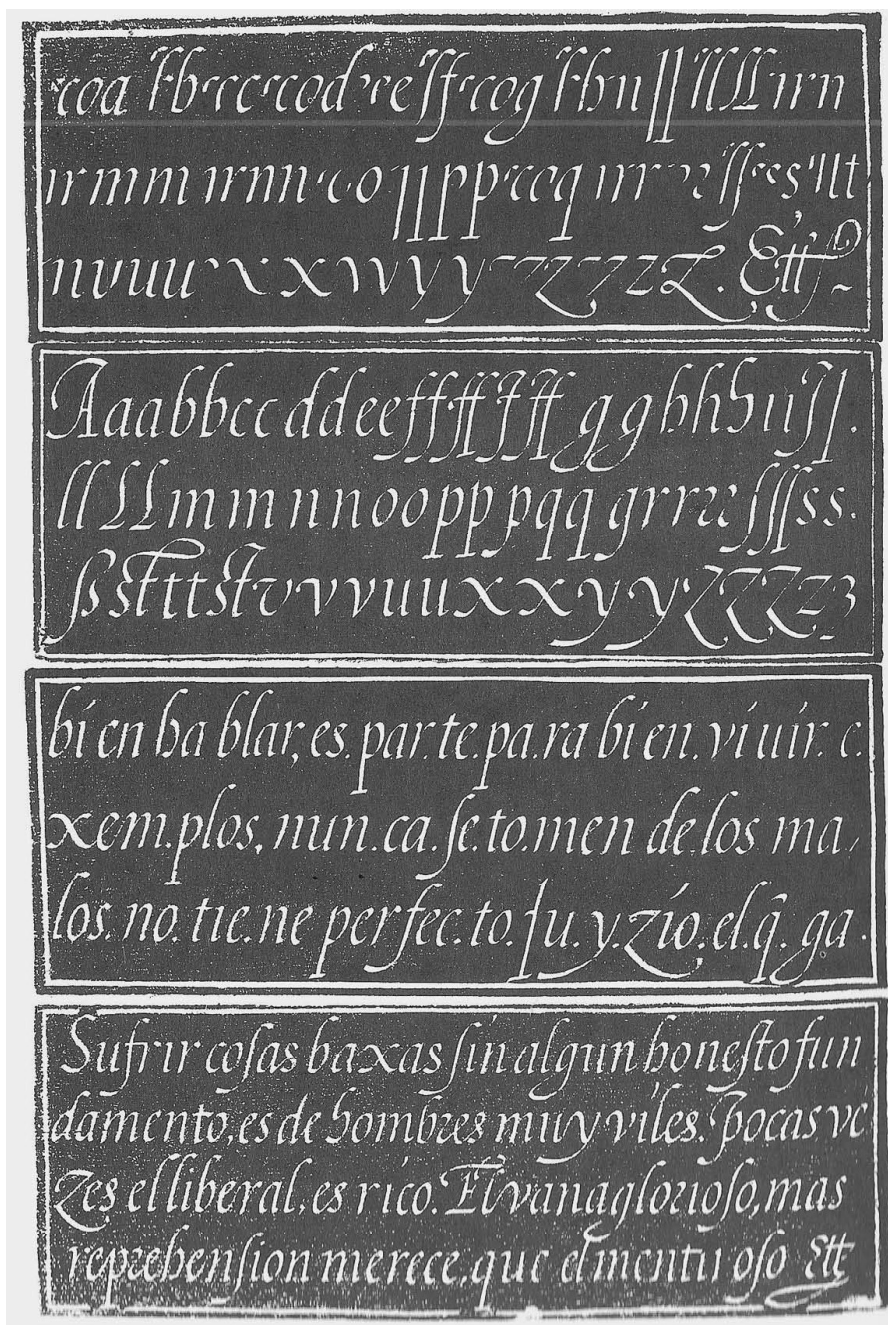 coa lbrcccod re ſſf cog lbhıı ȷȷ ıllLL ırn
ır m m ırnn co ȷȷ p p rccq ırr rꝛ ſſ s s ıl t
n v u u x x vv y y z z z z Z. Ett
A a a b b c c d d e e f f ff f ff g g h h h ı ı ſ ȷ.
ll LL m m n n o o p p p q q g r r ꝛ ꝛ ſſſ s s.
ß st t t st v v v u u x x y y z z z z 3
bi en ha blar, es. par.te.pa.ra bi en. vi uir. e.
xem.plos, nun.ca.ſe.to.men de.los. ma,
los. no. tie.ne perfec.to. ȷu.y.zio.el.q̃. ga.
Sufrir coſas baxas ſin algun honeſto fun
damento, es de hombres muy viles. Pocas ve
Zes el liberal, es rico. El vanaglorioſo, mas
reprehenſion merece, que el mentiroſo Ett